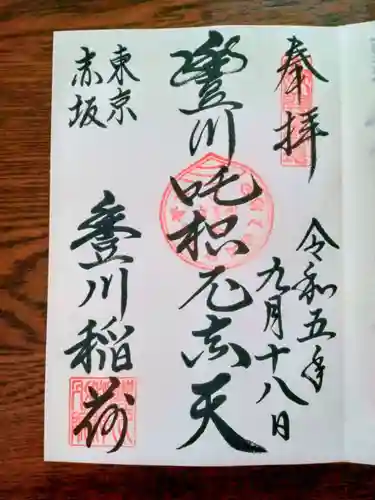 奉拝
令和五年
九月十八日
豊川
吒枳尼真天
東京
赤坂
豊川稲荷